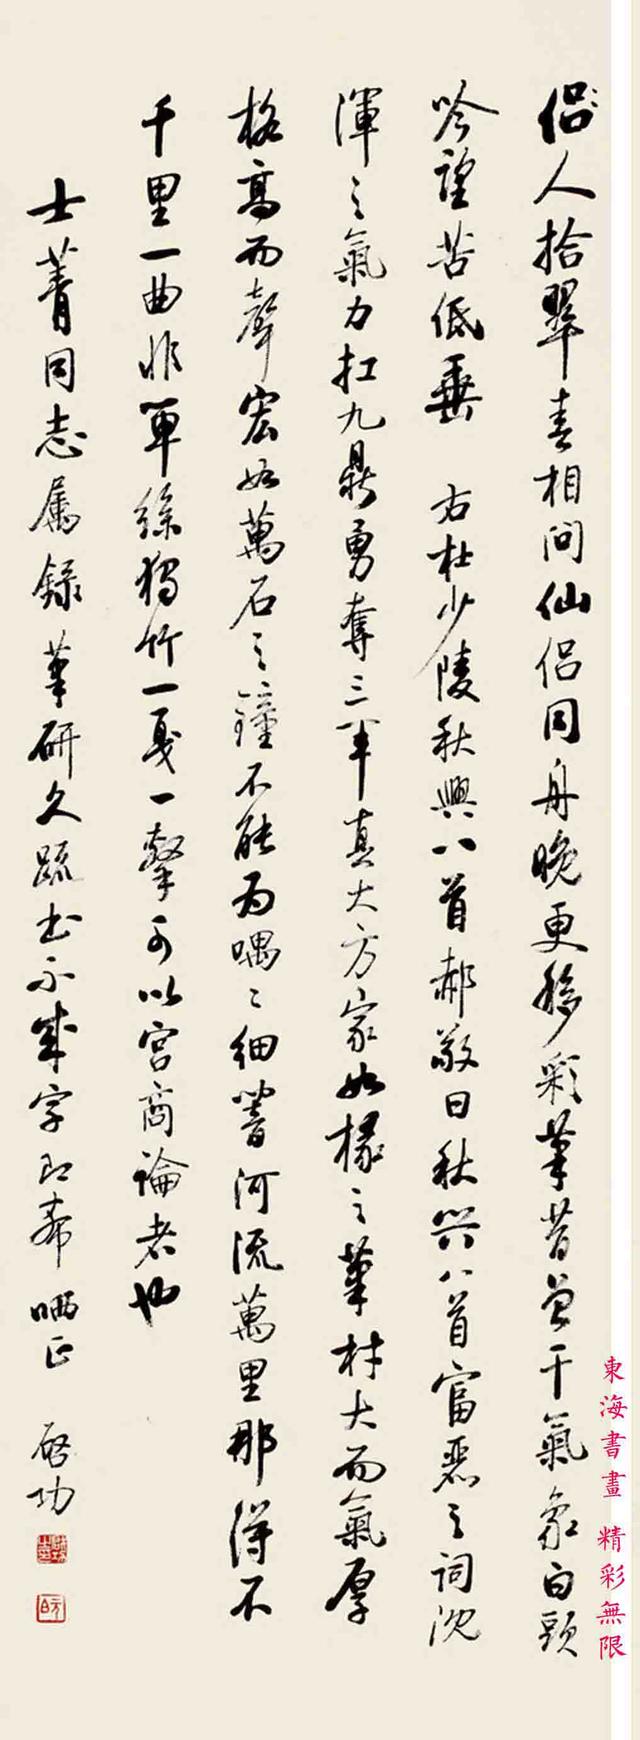 侣人拾翠春相問仙侣同舟晚更移彩筆昔曾干氣象白頭
吟望苦低垂 右杜少陵秋興八首郝敬曰秋興八首富麗之詞沈
渾之氣力扛九鼎勇奪三軍真大方家如椽之筆材大而氣厚
格高而聲宏如萬石之鐘不能为喁喁細響河流萬里那得不
千里一曲非單絲獨竹一戛一擊可以宫商論者也
士菁同志属録 筆研久疏书不成字即希 哂正 啟功
東海書畫 精彩無限